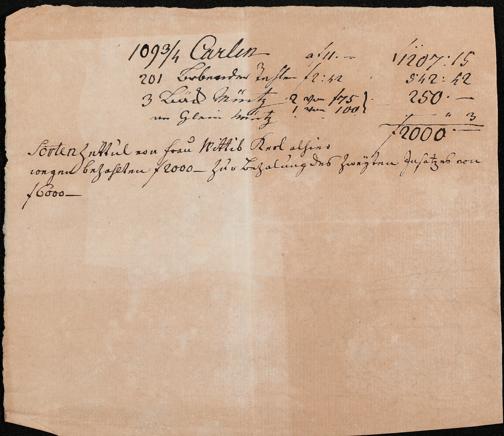 109 3/4 Carlin a f 11.— f 1207:15
201 Brabander Thaler f 2:42 542:42
3 Säck Müntz 2 von f 75 } 250.—
an Klein Müntz 1 von 100 } — " 3
f 2000 —
Sorten Zettul von Frau Wittib Kerl alhier
wegen bezahlten f 2000 — zur Bezahlung des Zweyten Satzes von
f 6000 —